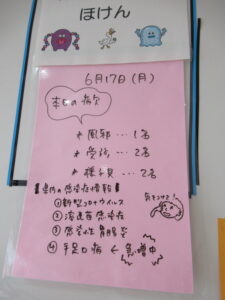 ほけん
6月17日(月)
本日の病欠
* 風邪 … 1名
* 受診 … 2名
* 様子見 … 2名
県内の感染症情報
①新型コロナウイルス
②溶連菌感染症
③感染性胃腸炎
④手足口病 ← 急増中
気をつけて!